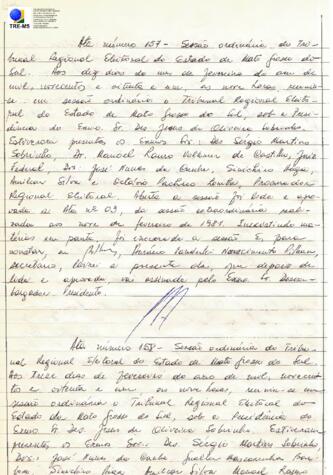 TRE-MS
Ata número 157 - Sessão ordinária do Tri-
bunal Regional Eleitoral do Estado de Mato Grosso do
Sul. Aos dez dias do mês de fevereiro do ano de
mil, novecentos e oitenta e um, às nove horas, reuniu-
se em sessão ordinária o Tribunal Regional Eleito-
ral do Estado de Mato Grosso do Sul, sob a Presi-
dência do Exmo. Sr. Des. Jesus de Oliveira Sobrinho.
Estiveram presentes os Exmos Srs: Des Sérgio Martins
Sobrinho, Dr. Manoel
Federal, Drs. José Nunes da Cunha,
Silva e Procurador
Regional Eleitoral. Aberta a sessão foi lida e apro-
vada a Ata nº 09, da sessão extraordinária reali-
zada aos nove de fevereiro de 1981. Inexistindo ma-
térias em pauta, foi encerrada a sessão. E, para
constar, eu
secretário, lavrei a presente ata, que depois de
lida e aprovada, vai assinada pelo Exmo. Sr. Desem-
bargador Presidente.
Ata número 158 - Sessão ordinária do Tribu-
nal Regional Eleitoral do Estado de Mato Grosso do Sul.
Aos treze dias de fevereiro do ano de mil, novecen-
tos e oitenta e um às nove horas, reuniu-se em
sessão ordinária o Tribunal Regional Eleitoral do
Estado de Mato Grosso do Sul, sob a Presidência do
Exmo Sr Des Jesus de Oliveira Sobrinho. Estiveram
presentes os Exmos Srs. Des Sérgio Martins Sobrinho
Drs: José Nunes da Cunha
Silva